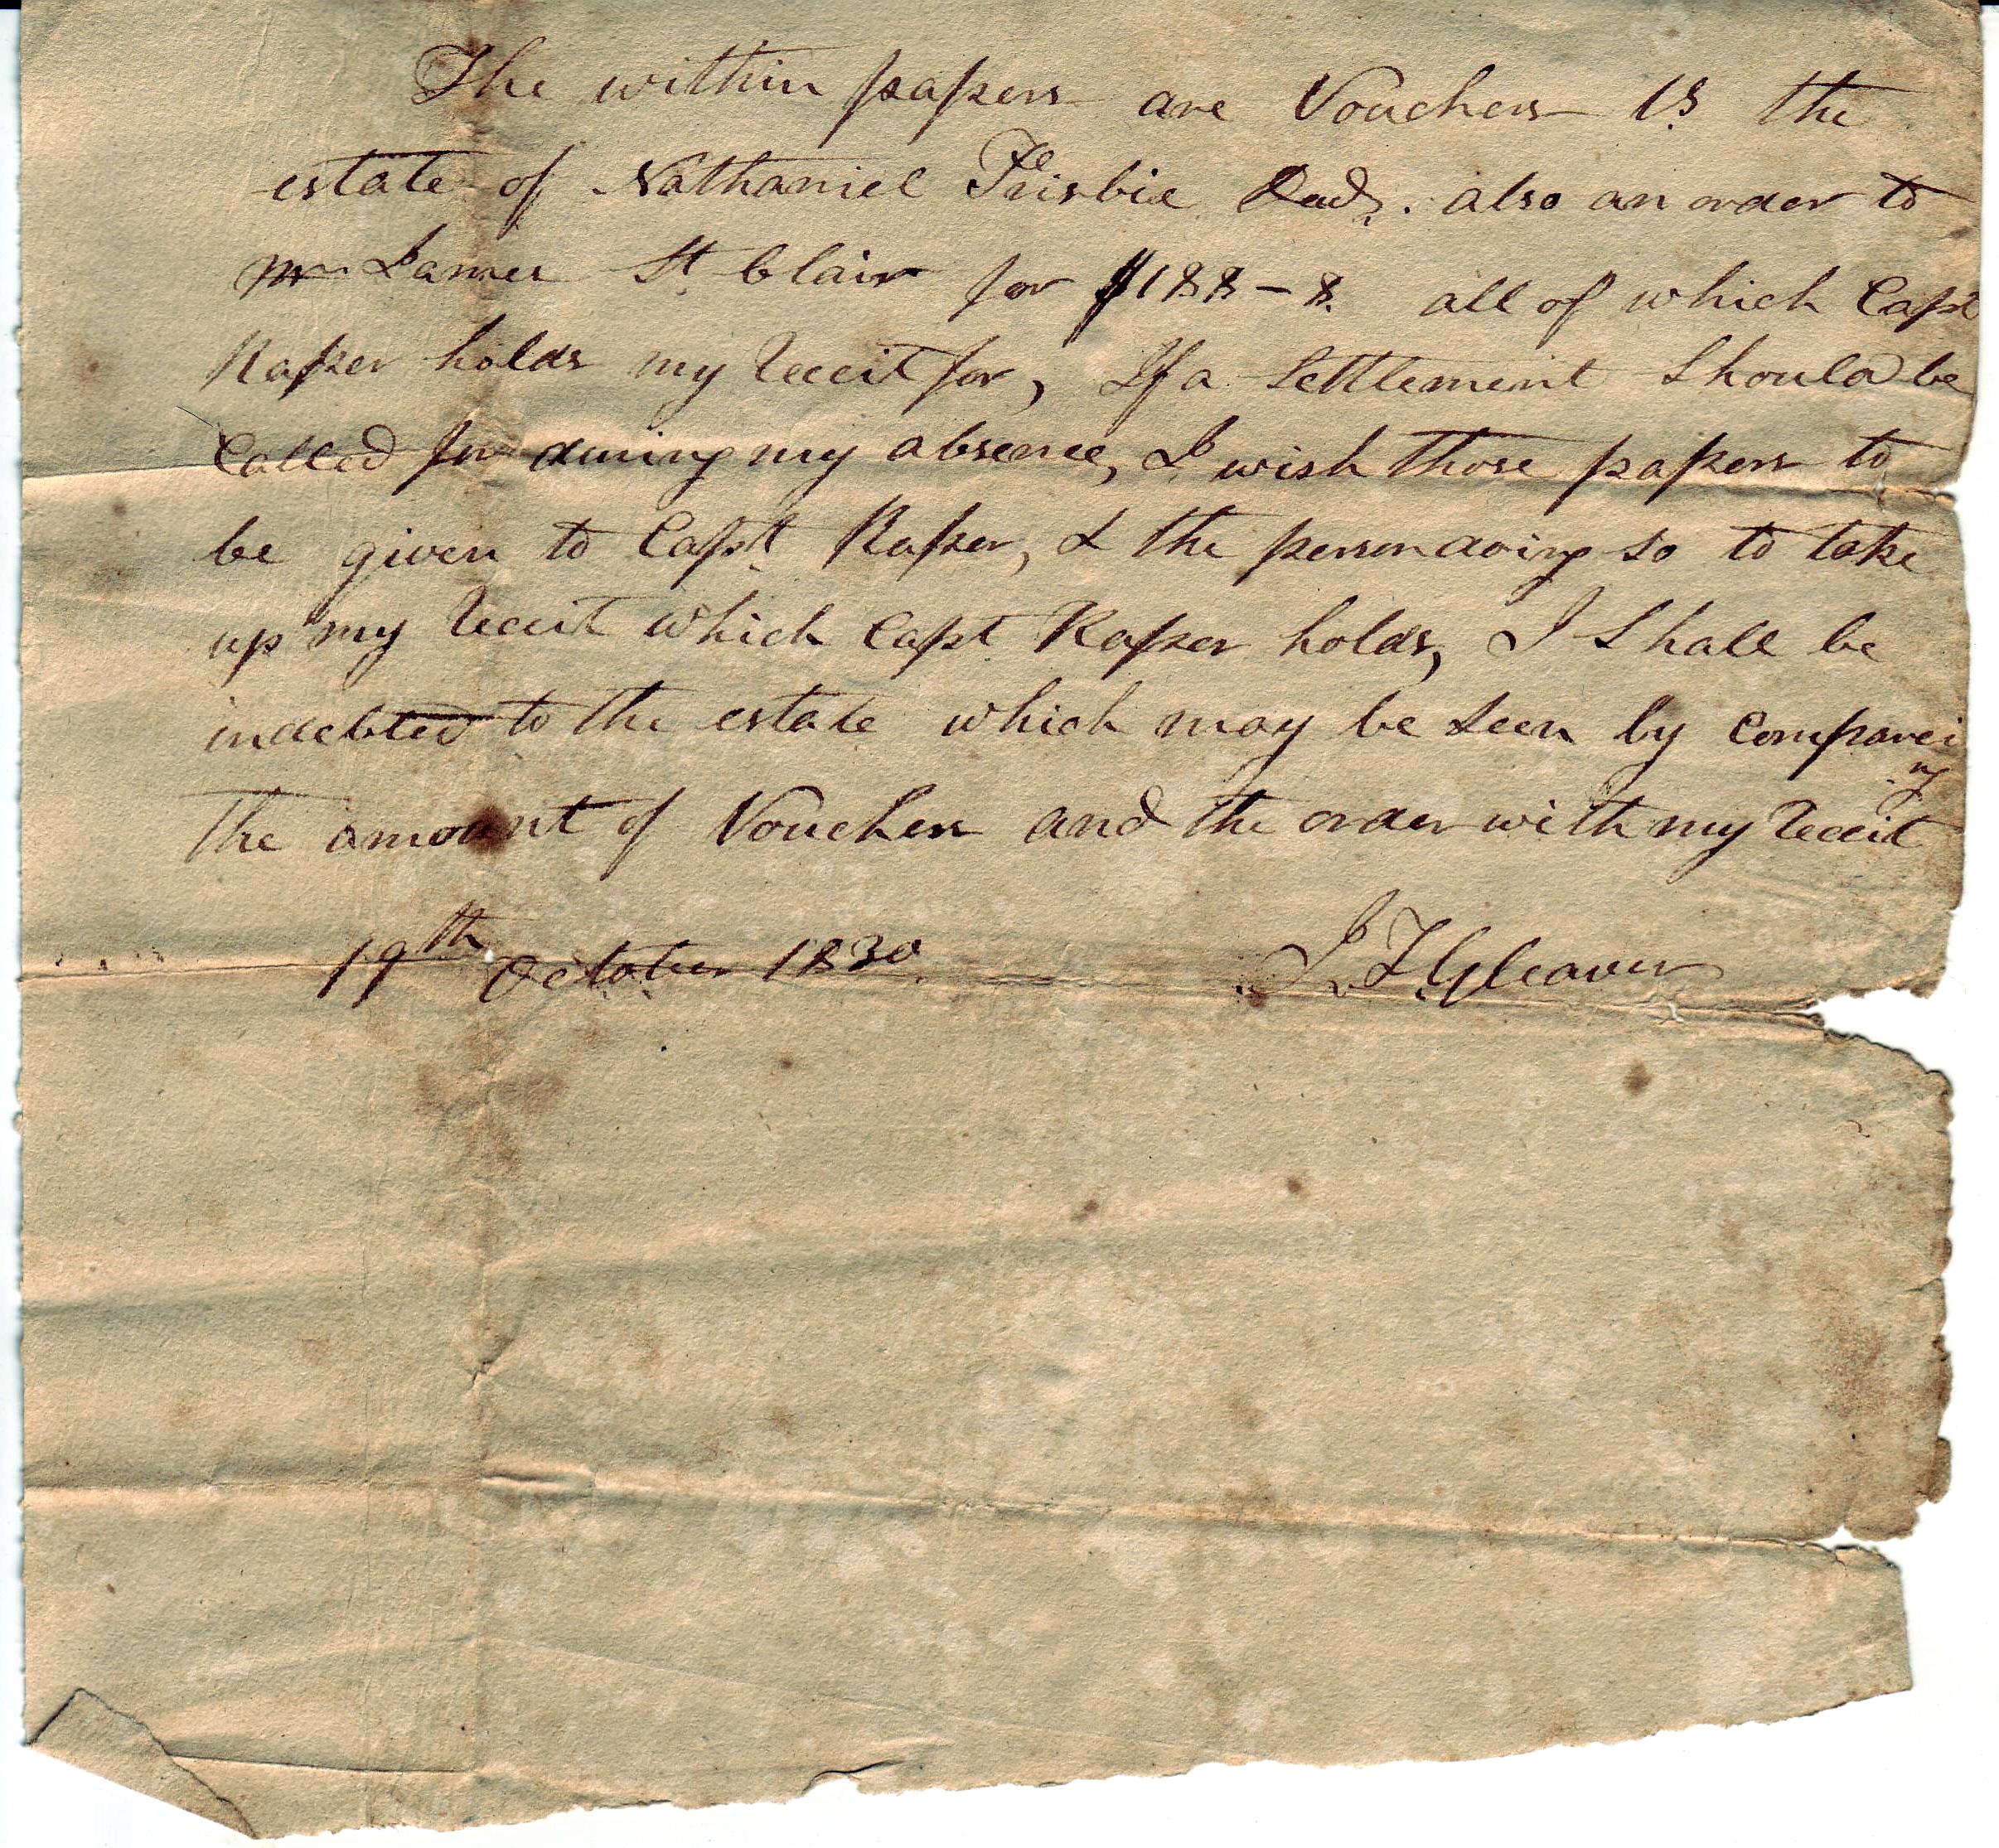 The within papers are Vouchers Vs. the
estate of Nathaniel Frisbie Decd. also an order to
Mr James St. Clair for $188-8. all of which Capt
Raper holds my Receit for, If a Settlement Should be
Called for during my absence, I wish those papers to
be given to Capt. Raper, & the person doing so to take
up my Receit which Capt Raper holds, I Shall be
indebted to the estate which may be Seen by Compareing
the amount of Vouchers and the order with my Receit
19th October 1830 J. T. Cleaver